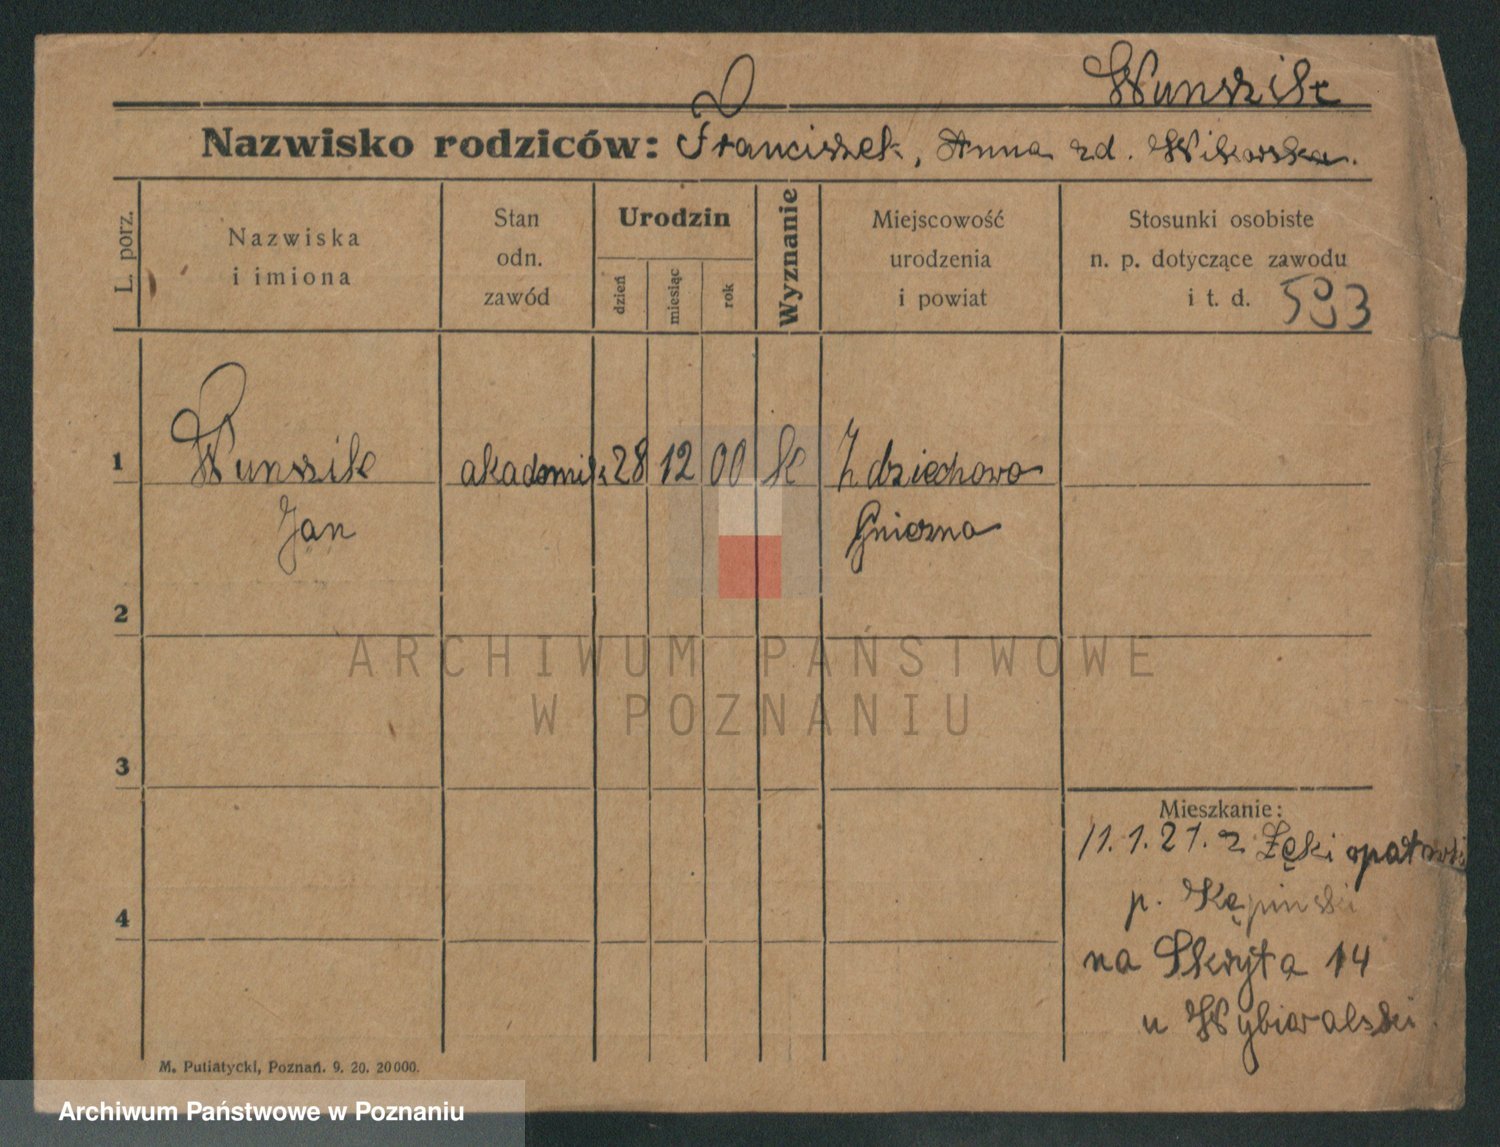 Wunszik
Nazwisko rodziców: Franciszek, Anna zd. Wikarska.
L. porz.
Nazwiska
i imiona
Stan
odn.
zawód
Urodzin
dzień
miesiąc
rok
Wyznanie
Miejscowość
urodzenia
i powiat
Stosunki osobiste
n. p. dotyczące zawodu
i t. d. 593
1 Wunszik akademik 28 12 00 k Zdziechowo
Jan Gniezno
2
ARCHIWUM PAŃSTWOWE
W POZNANIU
3
Mieszkanie:
11.1.21. z Łęki
p. Kępiński
4
na Skryta 14
u
M. Putiatycki, Poznań. 9. 20. 20000.
Archiwum Państwowe w Poznaniu